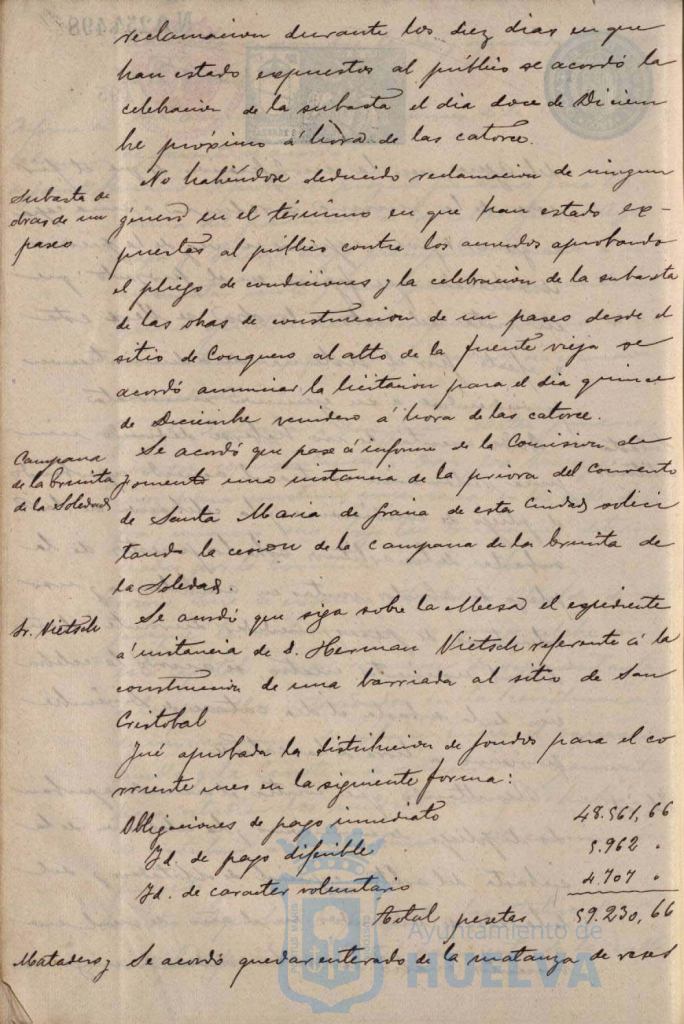 reclamacion durante los diez dias en que
han estado expuestos al público se acordó la
celebracion de la subasta el dia doce de Diciem
bre próximo á hora de las catorce.
Subasta de
obras de un
paseo
No habiéndose deducido reclamacion de ningun
género en el término en que han estado ex-
puestas al público contra los acuerdos aprobando
el pliego de condiciones y la celebracion de la subasta
de las obras de construccion de un paseo desde el
sitio de Conquero al alto de la fuente vieja se
acordó anunciar la licitacion para el dia quince
de Diciembre venidero á hora de las catorce.
Campana
de la Ermita
de la Soledad
Se acordó que pase á informe de la Comision de
fomento una instancia de la priora del Convento
de Santa Maria de Gracia de esta Ciudad solici
tando la cesion de la campana de la Ermita de
la Soledad.
Sr. Vietsch
Se acordó que siga sobre la Mesa el expediente
á instancia de D. Herman Vietsch referente á la
construccion de una barriada al sitio de San
Cristobal
Fué aprobada la distribucion de fondos para el co
rriente mes en la siguiente forma:
Obligaciones de pago inmediato 48.561,66
Id. de pago diferible 5.962 .
Id. de caracter voluntario 4.707 .
Total pesetas 59.230,66
Matadero y Se acordó quedar enterado de la matanza de reses
Ayuntamiento de
HUELVA